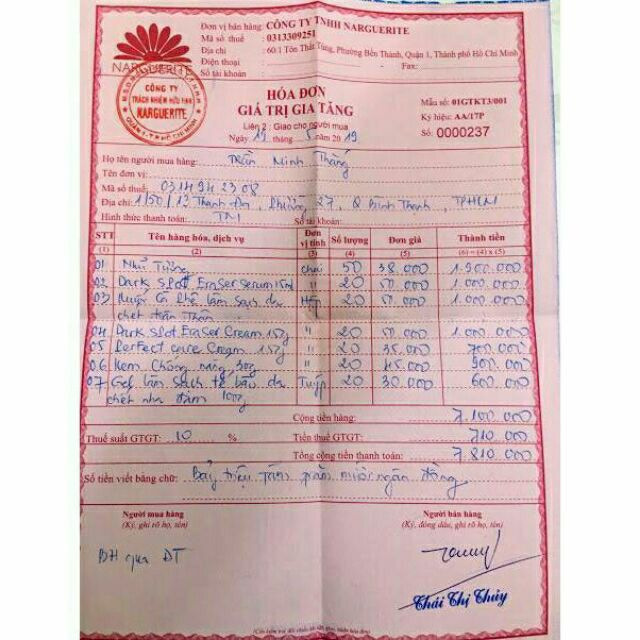 NARGUERITE
Đơn vị bán hàng: CÔNG TY TNHH NARGUERITE
Mã số thuế : 0313309251
Địa chỉ : 60.1 Tôn Thất Tùng, Phường Bến Thành, Quận 1, Thành phố Hồ Chí Minh
Điện thoại : - Fax:
Số tài khoản :
CÔNG TY
TRÁCH NHIỆM HỮU HẠN
NARGUERITE
QUẬN 1 - T.P HỒ CHÍ MINH
HÓA ĐƠN
GIÁ TRỊ GIA TĂNG
Liên 2 : Giao cho người mua
Ngày 19 tháng 5 năm 2019
Mẫu số: 01GTKT3/001
Ký hiệu: AA/17P
Số: 0000237
Họ tên người mua hàng: Trần Minh Thắng
Tên đơn vị:
Mã số thuế: 0314942308
Địa chỉ: 1/50/12 Thanh Đa, Phường 27, Q Bình Thạnh, TPHCM
Hình thức thanh toán: TM Số tài khoản:
STT Tên hàng hóa, dịch vụ Đơn vị tính Số lượng Đơn giá Thành tiền
(1) (2) (3) (4) (5) (6) = (4) x (5)
01 Nhũ Tương chai 50 38.000 1.900.000
02 Dark Spot Eraser Serum 15ml " 20 50.000 1.000.000
03 Muối Cà Phê làm sạch da 20 50.000 1.000.000
chết toàn Thân
04 Dark Spot Eraser Cream 15g " 20 50.000 1.000.000
05 Perfect care Cream 15g " 20 35.000 700.000
06 Kem Chống nắng 30g " 20 45.000 900.000
07 Gel làm sạch tế bào da Tuýp 20 30.000 600.000
chết nha đam 100g
Cộng tiền hàng: 7.100.000
Thuế suất GTGT: 10 % Tiền thuế GTGT: 710.000
Tổng cộng tiền thanh toán: 7.810.000
Số tiền viết bằng chữ: Bảy triệu tám trăm mười ngàn đồng
Người mua hàng
(Ký, ghi rõ họ, tên)
Người bán hàng
(Ký, đóng dấu, ghi rõ họ, tên)
BH qua ĐT
Thái Thị Thủy
(Cần kiểm tra đối chiếu khi lập, giao, nhận hóa đơn)